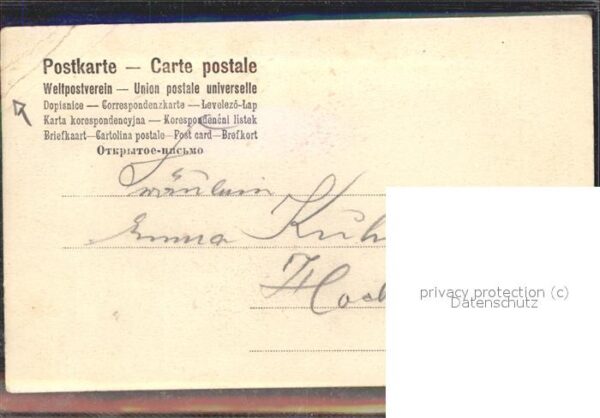 Postkarte — Carte postale
Weltpostverein — Union postale universelle
Dopisnice — Correspondenzkarte — Levelező-Lap
Karta korespondencyjna — Korespondenční lístek
Briefkaart—Cartolina postale—Post card—Brefkort
Открытое-письмо
Fräulein
Emma Küh
Hoch
privacy protection (c)
Datenschutz